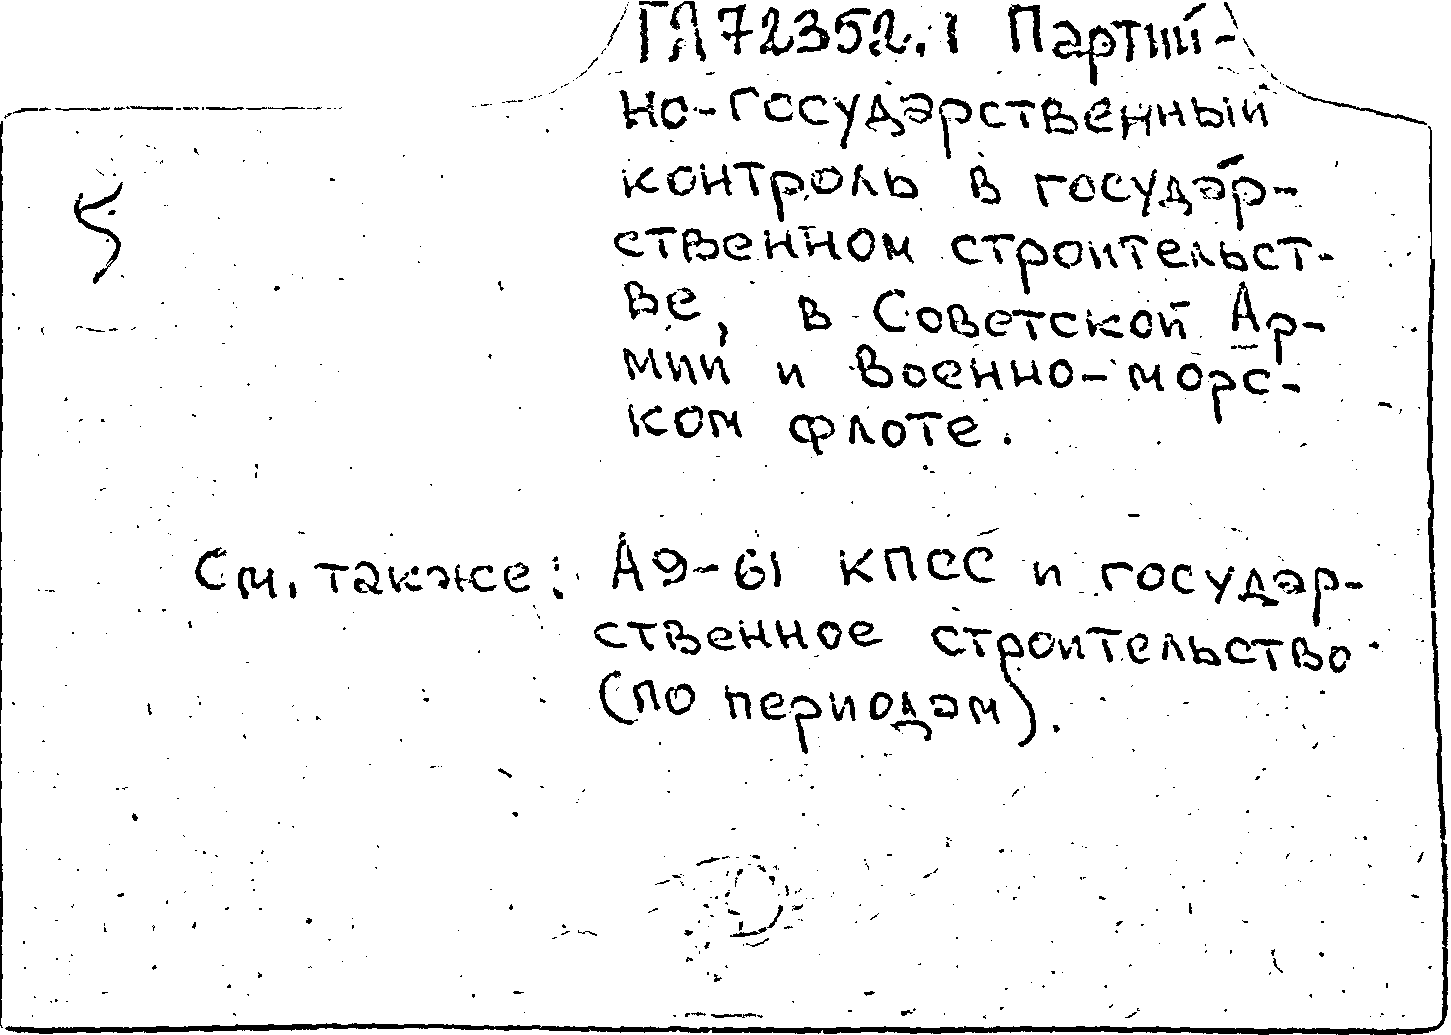 ГЛ72352.1 Партий-
но-государственный
контроль в государ-
ственном строительст-
ве, в Советской Ар-
мии и Военно-морс-
ком флоте.
5
См. также: А9-61 КПСС и государ-
ственное строительство
(по периодам).